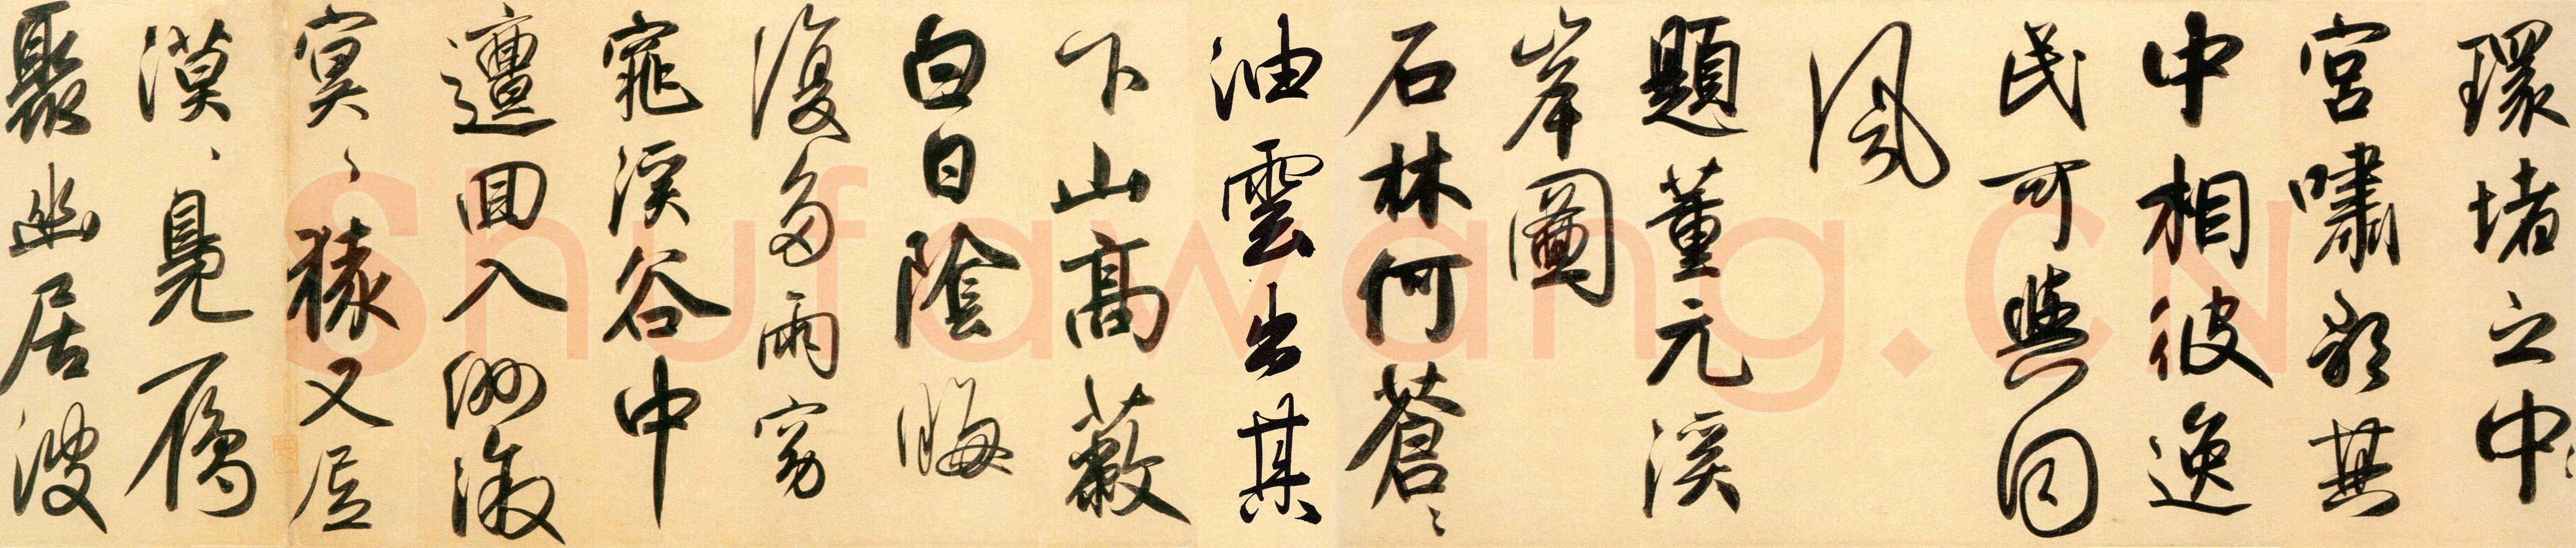 環堵之中
宮嘯歌其
中相彼逸
民可與同
風
題董元溪
岸圖
石林何蒼〻
油雲出其
下山高蔽
白日陰晦
復多雨窈
窕溪谷中
邅回入洲溆
冥〻猿又居
漠〻鳧雁
聚幽居彼
Shufawang.CN